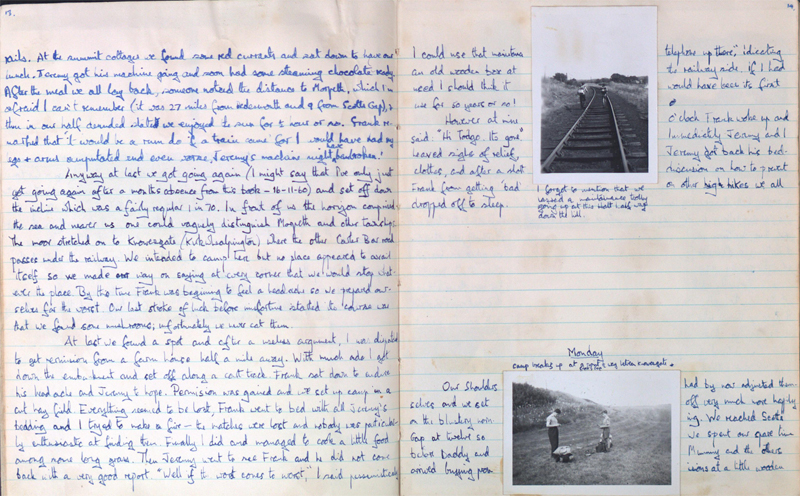 13.
rails. At the summit cottages we found some red currants and sat down to have our
lunch. Jeremy got his machine going and soon had some steaming chocolate ready.
After the meal we all lay back, someone noticed the distance to Morpeth, which I'm
afraid I can't remember (it was 27 miles from redesmouth and 9 from Scots Gap),
then in our half denuded state we enjoyed the sun for ½ hour or so. Frank re-
marked that 'it would be a rum do if a train came' for I would have had my
legs + arms amputated and even worse, Jeremy's machine might have been broken!
Anyway at last we got going again (I might say that I've only just
got going again after a months absence from this book - 16-11-60) and set off down
the incline which was a fairly regular 1 in 70. In front of us the horizon comprised
the sea and nearer us one could vaguely distinguish Morpeth and other townships.
The moor stretched on to Knowesgate (Kirkwhelpington) where the other Carter Bar road
passes under the railway. We intended to camp here but no place appeared to avail
itself so we made our way on saying at every corner that we would stop what-
ever the place. By this time Frank was beginning to feel a headache so we prepared our-
selves for the worst. Our last stroke of luck before misfortune started its course was
that we found some mushrooms, unfortunately we never eat them.
At last we found a spot and after a useless argument, I was dispatched
to get permission from a farm house half a mile away. With much ado I got
down the embankment and set off along a cart track. Frank sat down to endure
his headache and Jeremy to hope. Permission was gained and we set up camp in a
cut hay field. Everything seemed to be lost, Frank went to bed with all Jeremy's
bedding and I tried to make a fire - the matches were lost and nobody was particular-
ly enthusiastic at finding them. Finally I did and managed to cook a little food
among some long grass. Then Jeremy went to see Frank and he did not come
back with a very good report. "Well if the worst comes to worst," I said pessimistically
14.
I could use that
an old wooden box at
need I should think it
use for 50 years or so!
However at nine
said. "Hi Todgo. Its gone"
heaved sighs of relief,
clothes, and after a short
Frank from getting 'bad'
dropped off to sleep.
I forgot to mention that we
passed a maintenance trolley
going up at this halt I ate way
down the hill.
telephone up there," indicating
the railway side. if I had
would have been its first
o'clock Frank woke up and
Immediately Jeremy and I
Jeremy got back his bed-
discussion on how to prevent
on other hikes we all
Monday
Camp breaks up at a point ½ way between Knowesgate
Our shoulders
selves and we set
on this blustery morn-
Gap at twelve so
before Daddy and
arrived
had by now adjusted them-
off very much more happily
ing. We reached Scots
we spent our spare time
Mummy and the others
at a little wooden